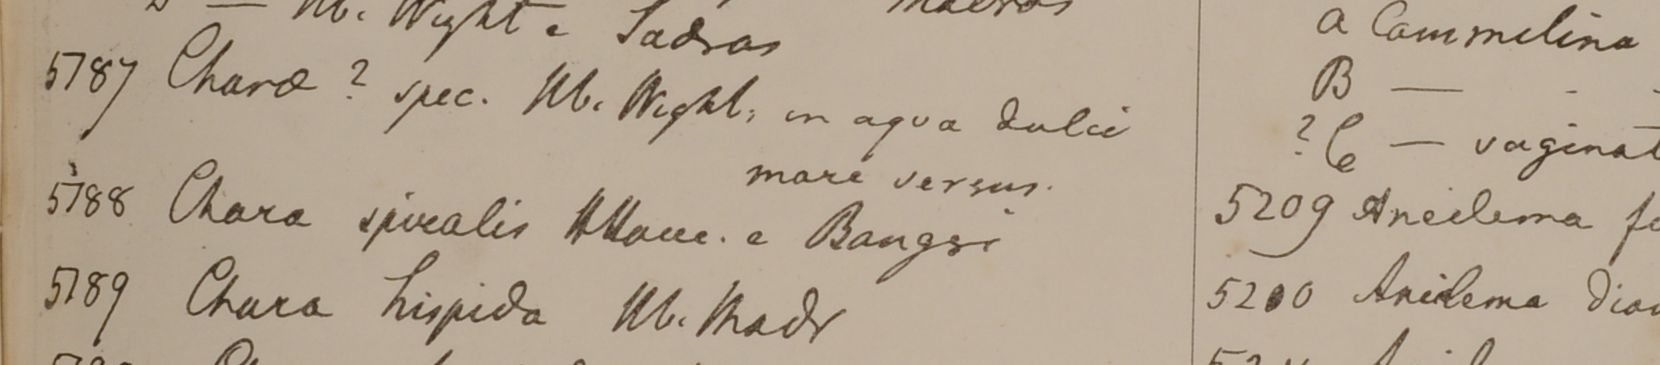 B — Hb. Wight e Sadras Madras
5187 Charæ ? spec. Hb. Wight, in aqua dulci
mare versus.
5188 Chara spiralis e Bangsi
5189 Chara hispida Hb. Madr
a Commelina
B —
? C — vaginat
5209 Aneilema fo
5210 Aneilema